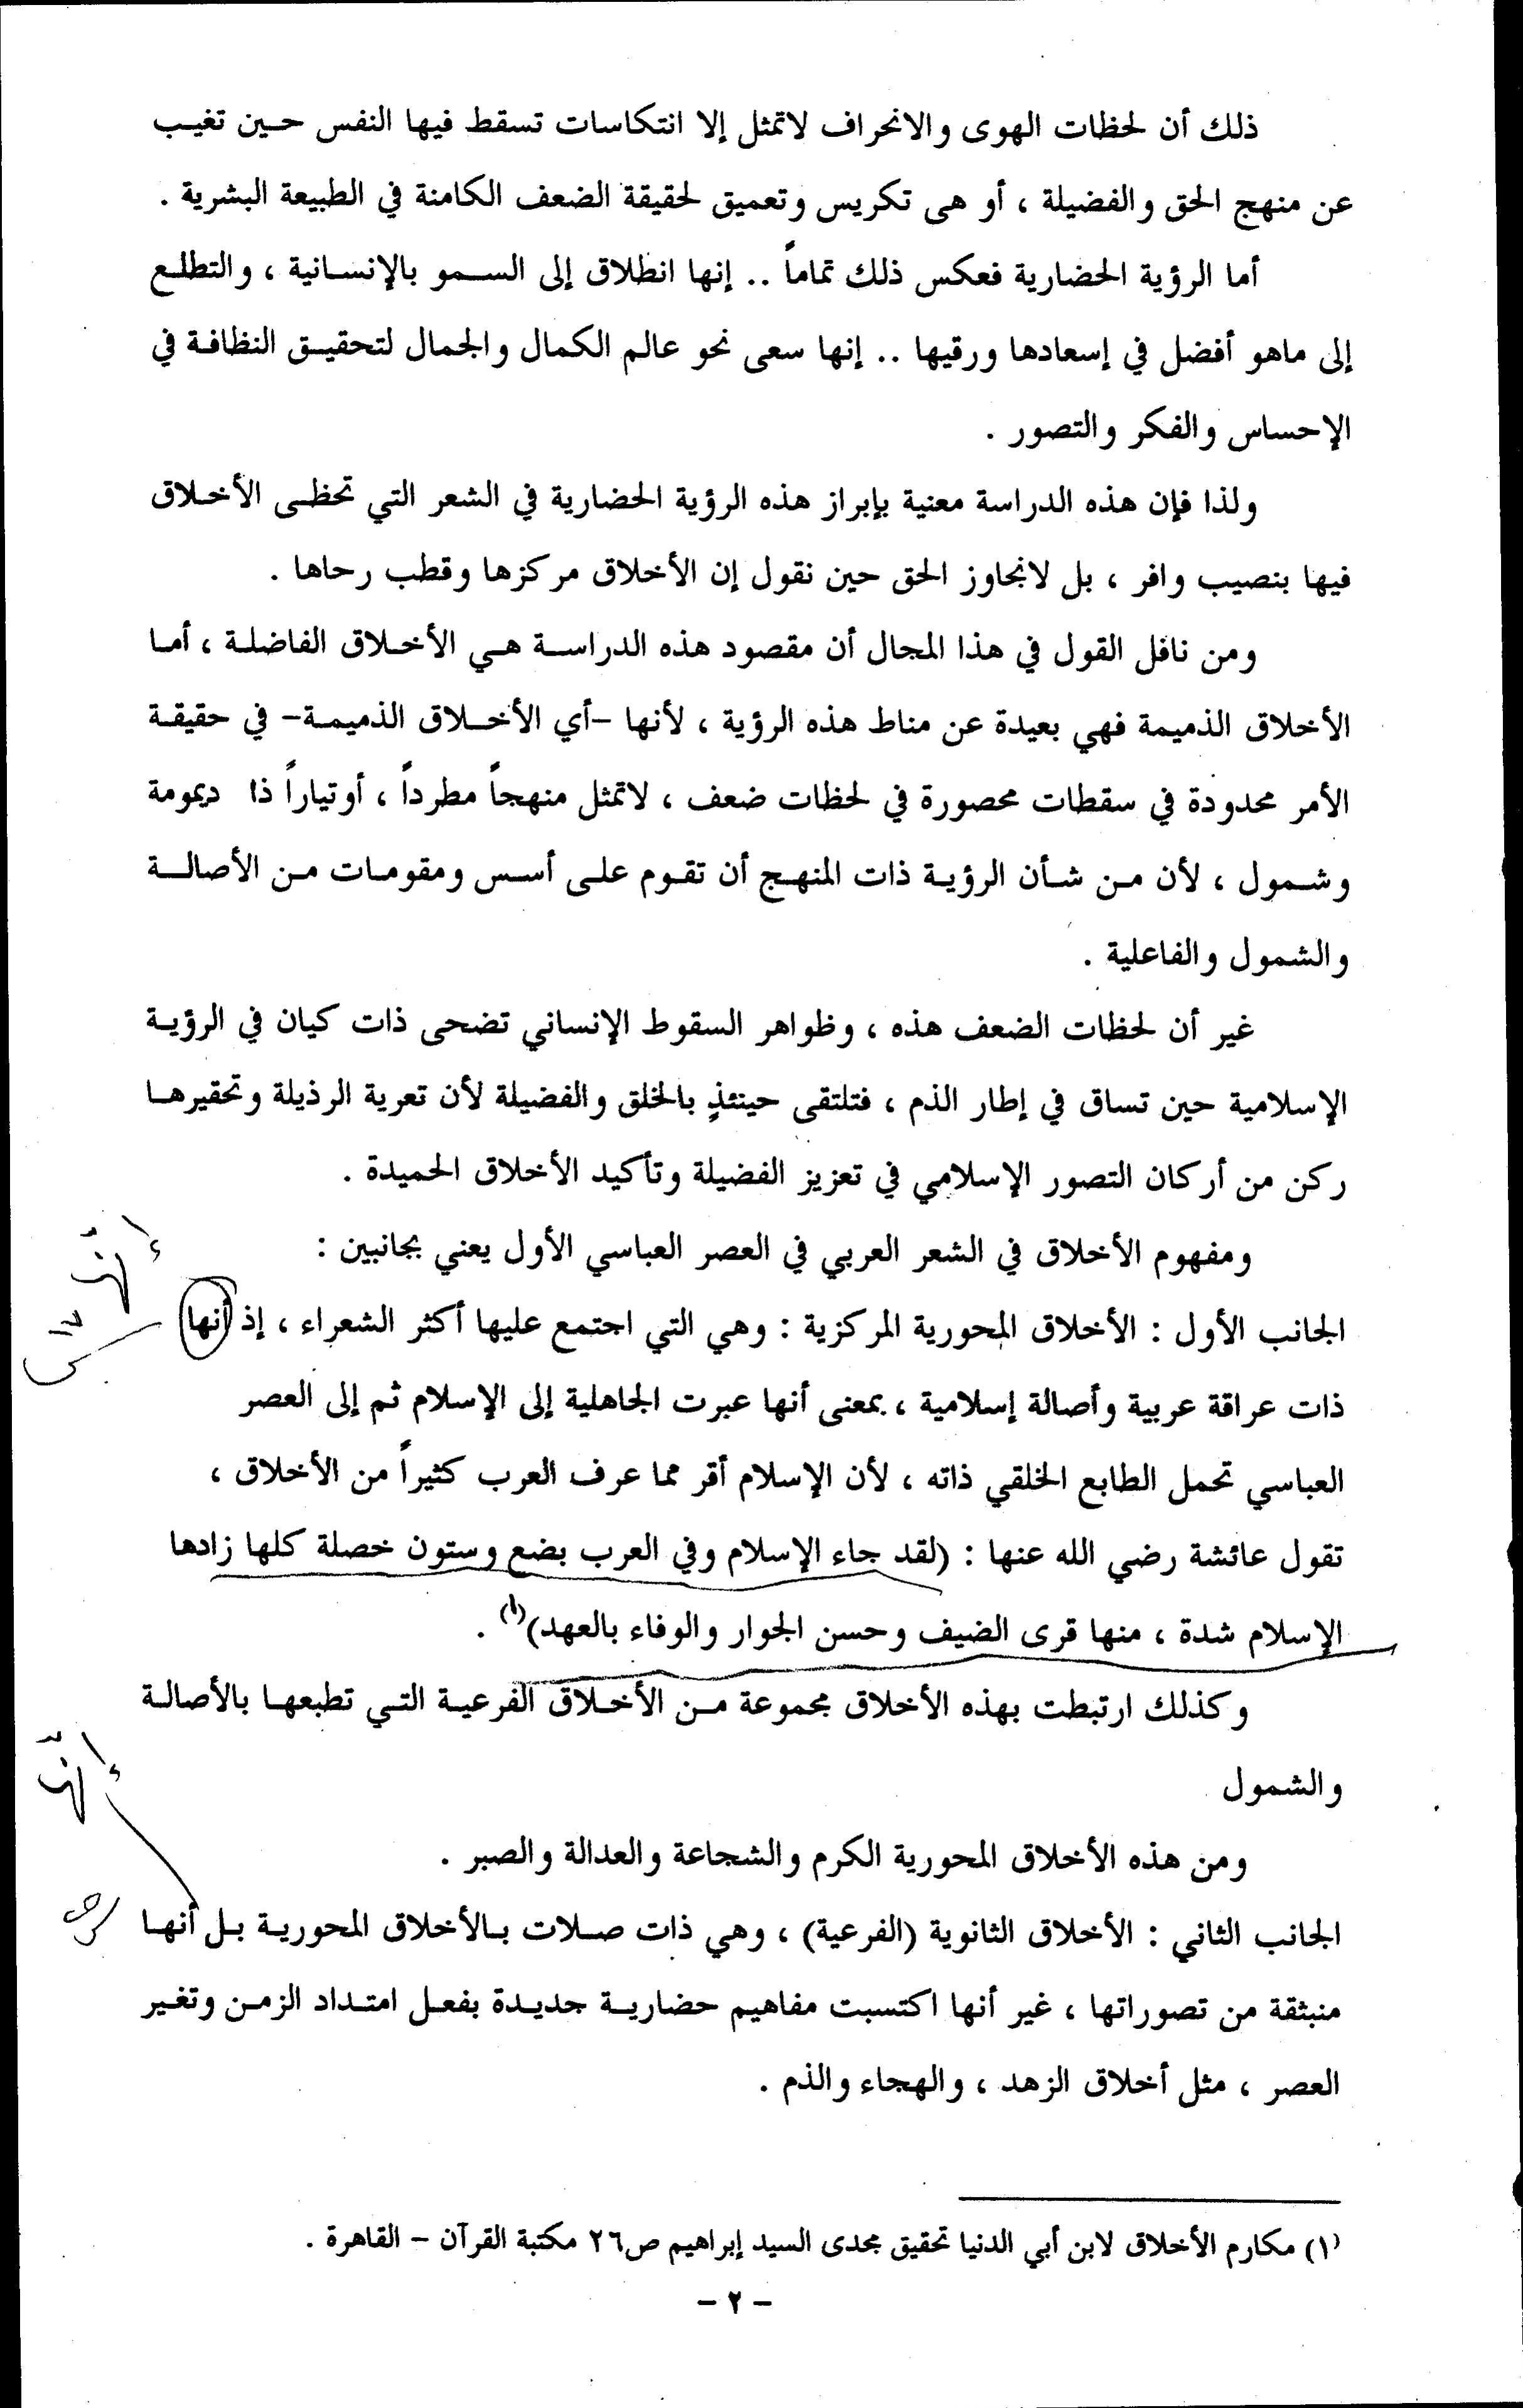 ذلك أن لحظات الهوى والانحراف لاتمثل إلا انتكاسات تسقط فيها النفس حين تغيب
عن منهج الحق والفضيلة ، أو هى تكريس وتعميق لحقيقة الضعف الكامنة في الطبيعة البشرية .
أما الرؤية الحضارية فعكس ذلك تماماً .. إنها انطلاق إلى السمو بالإنسانية ، والتطلع
إلى ماهو أفضل في إسعادها ورقيها .. إنها سعى نحو عالم الكمال والجمال لتحقيق النظافة في
الإحساس والفكر والتصور .
ولذا فإن هذه الدراسة معنية بإبراز هذه الرؤية الحضارية في الشعر التي تحظى الأخلاق
فيها بنصيب وافر ، بل لانجاوز الحق حين نقول إن الأخلاق مركزها وقطب رحاها .
ومن نافل القول في هذا المجال أن مقصود هذه الدراسة هي الأخلاق الفاضلة ، أما
الأخلاق الذميمة فهي بعيدة عن مناط هذه الرؤية ، لأنها -أي الأخلاق الذميمة- في حقيقة
الأمر محدودة في سقطات محصورة في لحظات ضعف ، لاتمثل منهجاً مطرداً ، أوتياراً ذا ديمومة
وشمول ، لأن من شأن الرؤية ذات المنهج أن تقوم على أسس ومقومات من الأصالة
والشمول والفاعلية .
غير أن لحظات الضعف هذه ، وظواهر السقوط الإنساني تضحى ذات كيان في الرؤية
الإسلامية حين تساق في إطار الذم ، فتلتقى حينئذٍ بالخلق والفضيلة لأن تعرية الرذيلة وتحقيرها
ركن من أركان التصور الإسلامي في تعزيز الفضيلة وتأكيد الأخلاق الحميدة .
ومفهوم الأخلاق في الشعر العربي في العصر العباسي الأول يعني بجانبين :
إنّها
الجانب الأول : الأخلاق المحورية المركزية : وهي التي اجتمع عليها أكثر الشعراء ، إذ أنها
ذات عراقة عربية وأصالة إسلامية ، بمعنى أنها عبرت الجاهلية إلى الإسلام ثم إلى العصر
العباسي تحمل الطابع الخلقي ذاته ، لأن الإسلام أقر مما عرف العرب كثيراً من الأخلاق ،
تقول عائشة رضي الله عنها : (لقد جاء الإسلام وفي العرب بضع وستون خصلة كلها زادها
الإسلام شدة ، منها قرى الضيف وحسن الجوار والوفاء بالعهد)(١) .
وكذلك ارتبطت بهذه الأخلاق مجموعة من الأخلاق الفرعية التي تطبعها بالأصالة
والشمول
إنّها
ومن هذه الأخلاق المحورية الكرم والشجاعة والعدالة والصبر .
الجانب الثاني : الأخلاق الثانوية (الفرعية) ، وهي ذات صلات بالأخلاق المحورية بل أنها
منبثقة من تصوراتها ، غير أنها اكتسبت مفاهيم حضارية جديدة بفعل امتداد الزمن وتغير
العصر ، مثل أخلاق الزهد ، والهجاء والذم .
(١) مكارم الأخلاق لابن أبي الدنيا تحقيق مجدى السيد إبراهيم ص٢٦ مكتبة القرآن - القاهرة .
- ٢ -